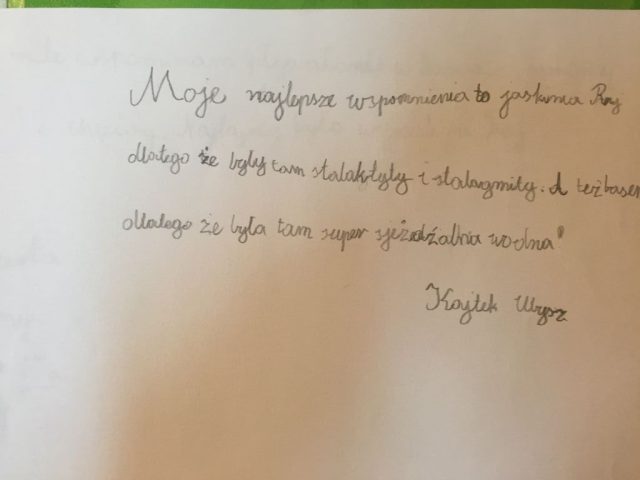 Moje najlepsze wspomnienia to jaskinia Raj
dlatego że były tam stalaktyty i stalagmity. A też basen
dlatego że była tam super sjeżdżalnia wodna"
Kajtek